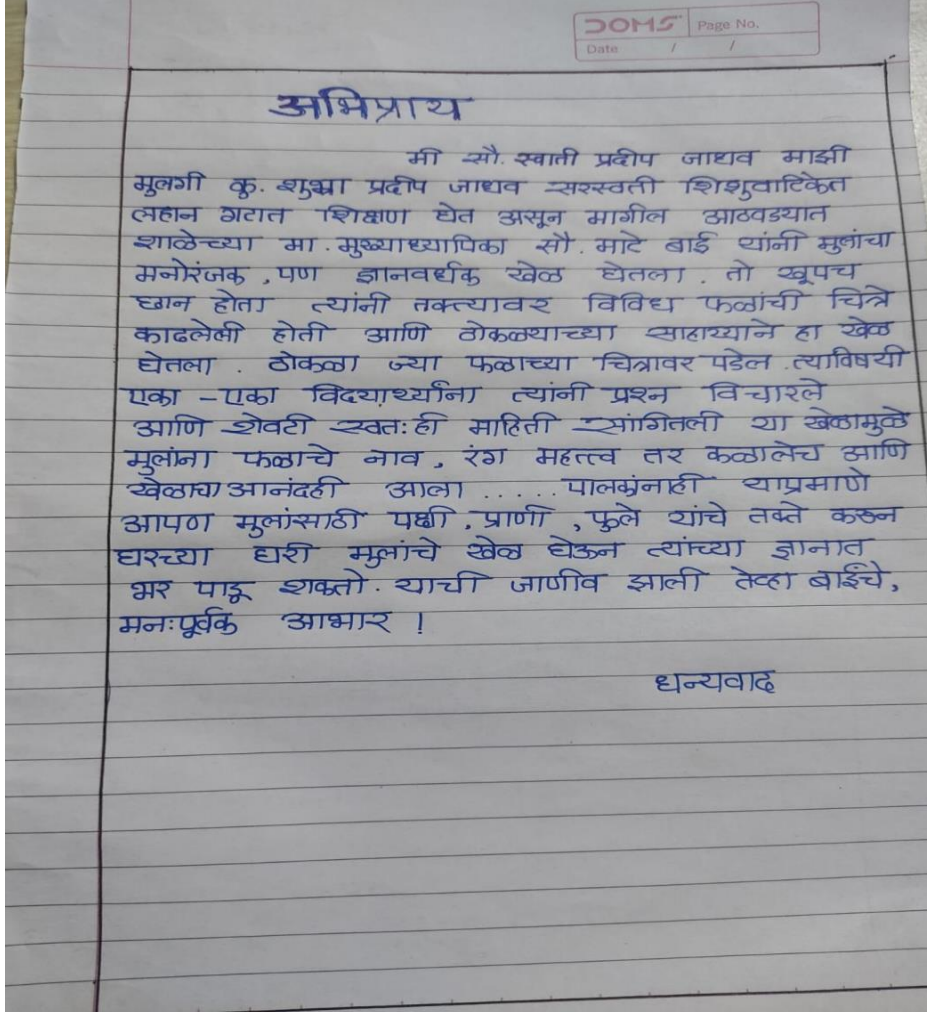 DOMS Page No.
Date / /
अभिप्राय
मी सौ. स्वाती प्रदीप जाधव माझी
मुलगी कु. शुभ्रा प्रदीप जाधव सरस्वती शिशुवाटिकेत
लहान गटात शिक्षण घेत असून मागील आठवडयात
शाळेच्या मा. मुख्याध्यापिका सौ. माटे बाई यांनी मुलांचा
मनोरंजक, पण ज्ञानवर्धक खेळ घेतला. तो खूपच
छान होता त्यांनी तक्त्यावर विविध फळांची चित्रे
काढलेली होती आणि ठोकळयाच्या साहाय्याने हा खेळ
घेतला. ठोकळा ज्या फळाच्या चित्रावर पडेल त्याविषयी
एका - एका विदयार्थ्यांना त्यांनी प्रश्न विचारले
आणि शेवटी स्वतःही माहिती सांगितली या खेळामुळे
मुलांना फळाचे नाव, रंग महत्त्व तर कळालेच आणि
खेळाचा आनंदही आला ..... पालकांनाही याप्रमाणे
आपण मुलांसाठी पक्षी, प्राणी, फुले यांचे तक्ते करून
घरच्या घरी मुलांचे खेळ घेऊन त्यांच्या ज्ञानात
भर पाडू शकतो. याची जाणीव झाली तेव्हा बाईंचे,
मनःपूर्वक आभार !
धन्यवाद